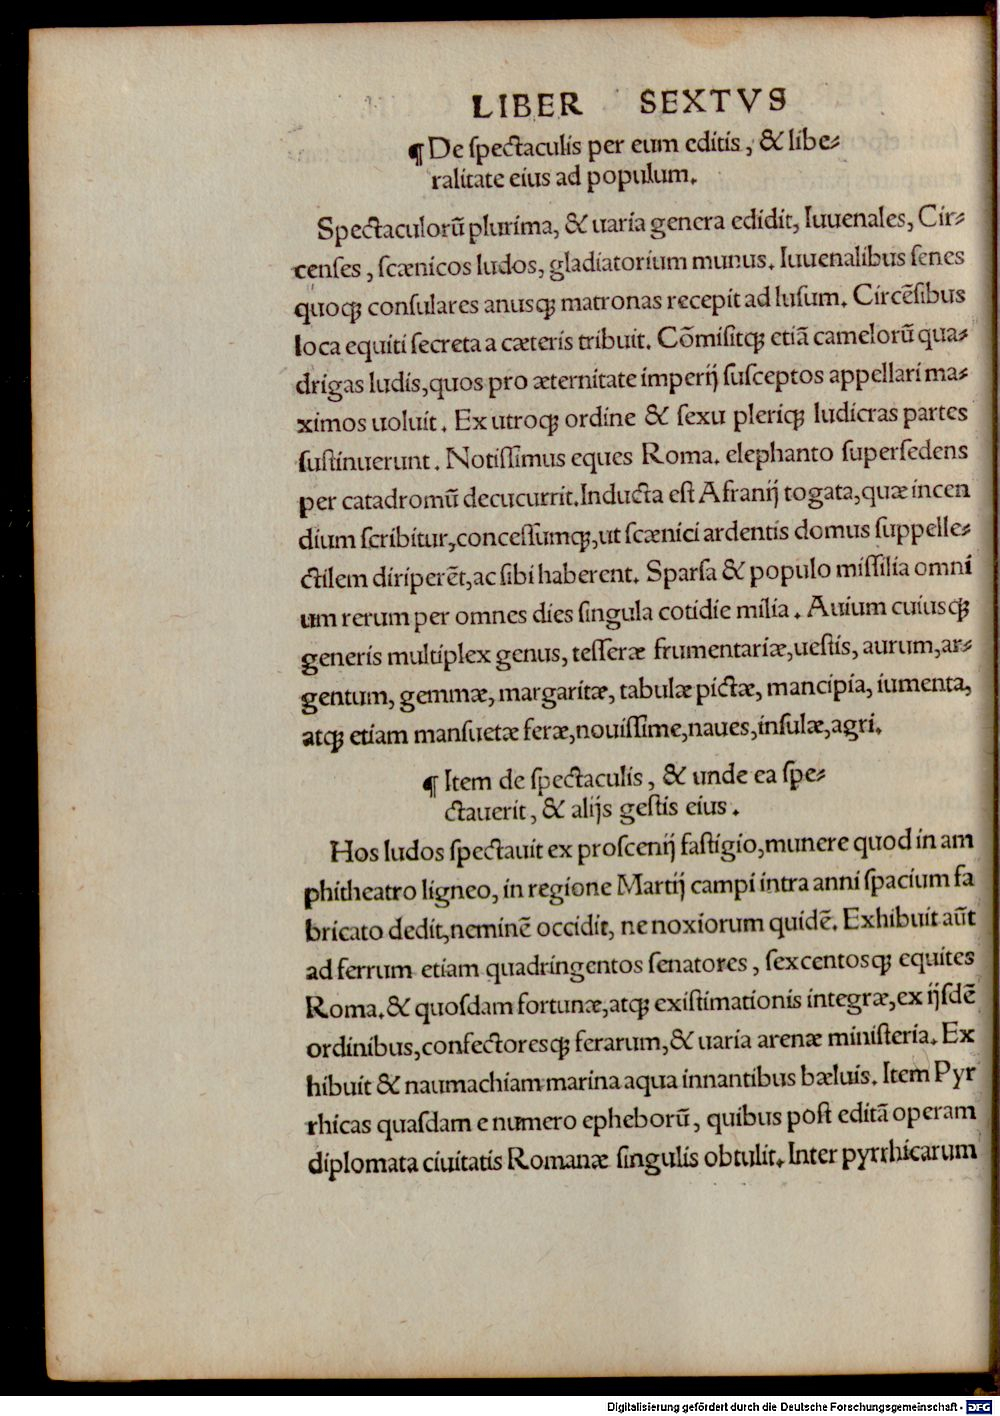 LIBER SEXTVS
¶ De ſpectaculis per eum editis, & libe⸗
ralitate eius ad populum.
Spectaculorũ plurima, & uaria genera edidit, Iuuenales, Cir⸗
cenſes, ſcænicos ludos, gladiatorium munus. Iuuenalibus ſenes
quoqꝫ conſulares anusqꝫ matronas recepit ad luſum. Circẽſibus
loca equiti ſecreta a cæteris tribuit. Cõmiſitqꝫ etiã camelorũ qua⸗
drigas ludis, quos pro æternitate imperij ſuſceptos appellari ma⸗
ximos uoluit. Ex utroqꝫ ordine & ſexu pleriqꝫ ludicras partes
ſuſtinuerunt. Notiſſimus eques Roma. elephanto ſuperſedens
per catadromũ decucurrit. Inducta eſt Afranij togata, quæ incen
dium ſcribitur, conceſſumqꝫ, ut ſcænici ardentis domus ſuppelle⸗
ctilem diriperẽt, ac ſibi haberent. Sparſa & populo miſſilia omni
um rerum per omnes dies ſingula cotidie milia. Auium cuiusqꝫ
generis multiplex genus, teſſeræ frumentariæ, ueſtis, aurum, ar⸗
gentum, gemmæ, margaritæ, tabulæ pictæ, mancipia, iumenta,
atqꝫ etiam manſuetæ feræ, nouiſſime, naues, inſulæ, agri.
¶ Item de ſpectaculis, & unde ea ſpe⸗
ctauerit, & alijs geſtis eius.
Hos ludos ſpectauit ex proſcenij faſtigio, munere quod in am
phitheatro ligneo, in regione Martij campi intra anni ſpacium fa
bricato dedit, neminẽ occidit, ne noxiorum quidẽ. Exhibuit aũt
ad ferrum etiam quadringentos ſenatores, ſexcentosqꝫ equites
Roma. & quoſdam fortunæ, atqꝫ exiſtimationis integræ, ex ijſdẽ
ordinibus, confectoresqꝫ ferarum, & uaria arenæ miniſteria. Ex
hibuit & naumachiam marina aqua innantibus bæluis. Item Pyr
rhicas quaſdam e numero epheborũ, quibus poſt editã operam
diplomata ciuitatis Romanæ ſingulis obtulit. Inter pyrrhicarum
Digitalisierung gefördert durch die Deutsche Forschungsgemeinschaft - DFG